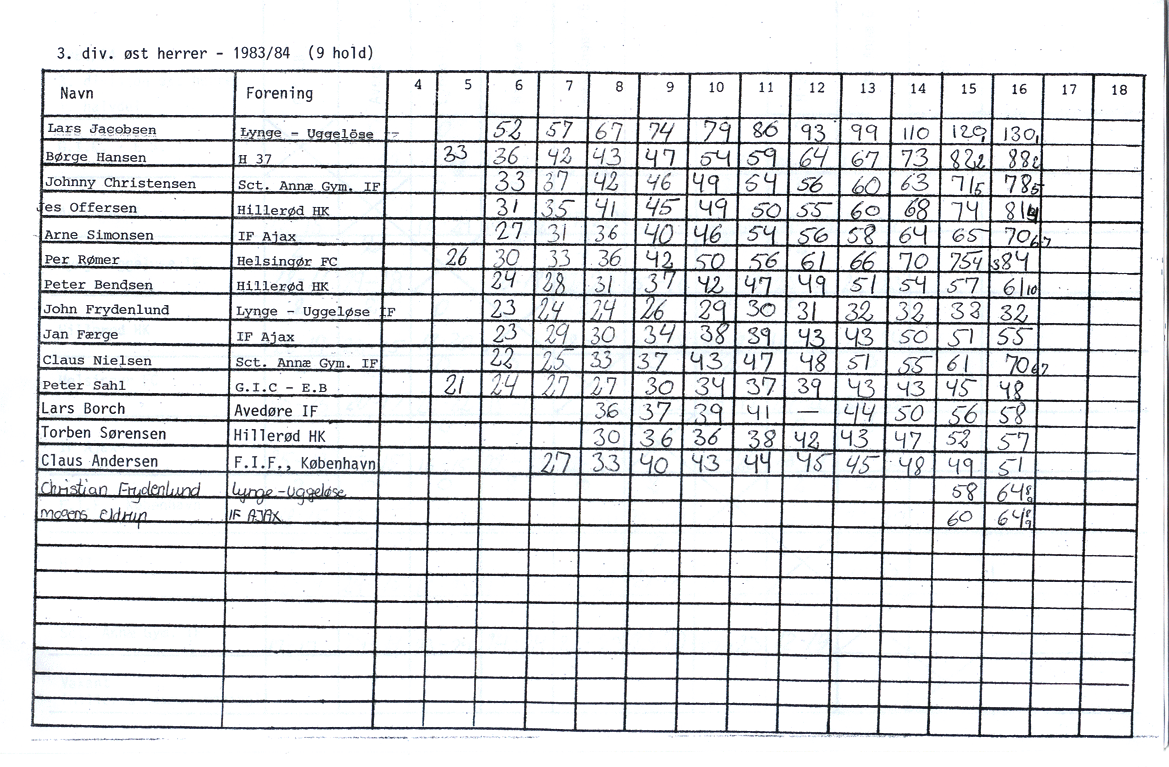 3. div. øst herrer - 1983/84 (9 hold)
Navn Forening 4 5 6 7 8 9 10 11 12 13 14 15 16 17 18
Lars Jacobsen Lynge - Uggelöse 52 57 67 74 79 86 93 99 110 120 1 130 1
Børge Hansen H 37 33 36 42 43 47 54 59 64 67 73 82 2 88 2
Johnny Christensen Sct. Annæ Gym. IF 33 37 42 46 49 54 56 60 63 71 5 78 5
Jes Offersen Hillerød HK 31 35 41 45 49 50 55 60 68 74 81 4
Arne Simonsen IF Ajax 27 31 36 40 46 54 56 58 64 65 70 67
Per Rømer Helsingør FC 26 30 33 36 42 50 56 61 66 70 75 4 3 84
Peter Bendsen Hillerød HK 24 28 31 37 42 47 49 51 54 57 61 10
John Frydenlund Lynge - Uggeløse IF 23 24 24 26 29 30 31 32 32 32
Jan Færge IF Ajax 23 29 30 34 38 39 43 43 50 51 55
Claus Nielsen Sct. Annæ Gym. IF 22 25 33 37 43 47 48 51 55 61 70 67
Peter Sahl G.I.C - E.B 21 24 27 27 30 34 37 39 43 43 45 48
Lars Borch Avedøre IF 36 37 39 41 — 44 50 56 58
Torben Sørensen Hillerød HK 30 36 36 38 42 43 47 52 57
Claus Andersen F.I.F., København 27 33 40 43 44 45 45 48 49 51
Christian Frydenlund Lynge-Uggeløse 58 64 8 9
Mogens Eldrup IF AJAX 60 64 8 9